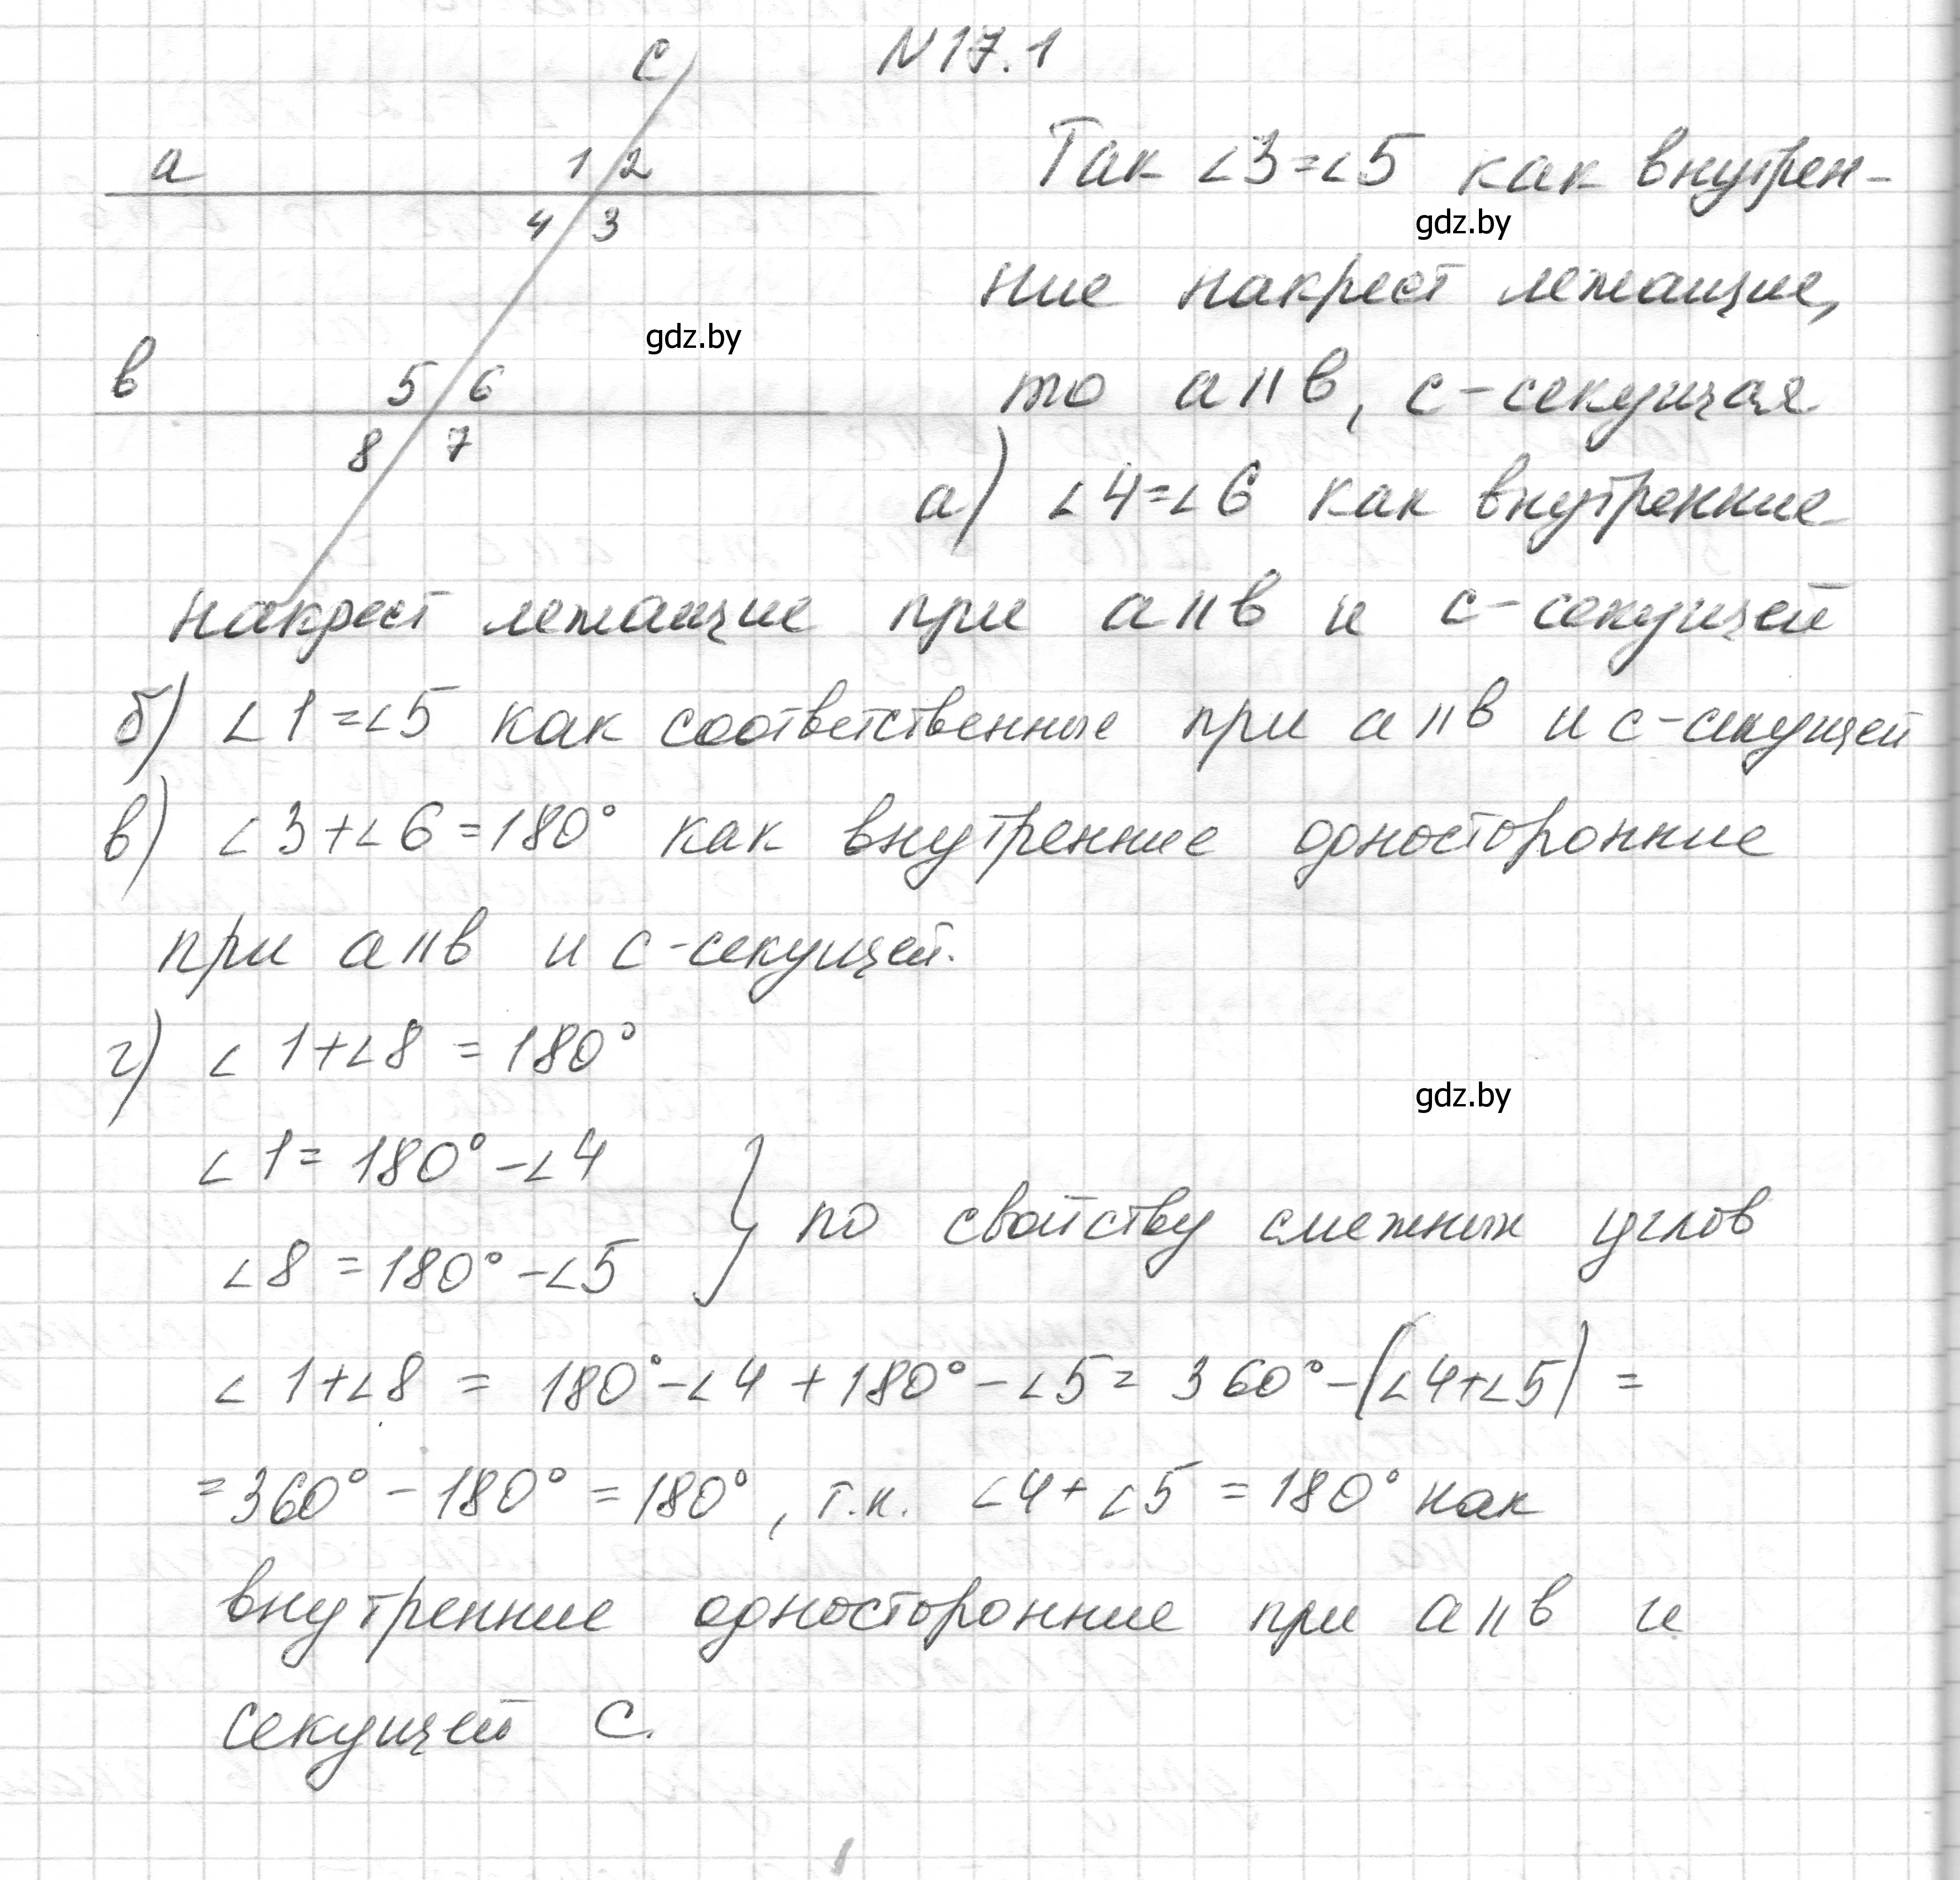 N 17.1
c
a 1 2
4 3
Так ∠3=∠5 как внутрен-
gdz.by
ние накрест лежащие,
gdz.by
в 5 6
8 7
то а॥в, с-секущая
а) ∠4=∠6 как внутренние
накрест лежащие при а॥в и с-секущей
б) ∠1=∠5 как соответственные при а॥в и с-секущей
в) ∠3+∠6=180° как внутренние односторонние
при а॥в и с-секущей.
г) ∠1+∠8 = 180°
gdz.by
∠1= 180° -∠4
∠8 = 180° -∠5
} по свойству смежных углов
∠1+∠8 = 180°-∠4 + 180° - ∠5 = 360° - (∠4+∠5) =
= 360° - 180° = 180°, т.к. ∠4 + ∠5 = 180° как
внутренние односторонние при а॥в и
секущей С.